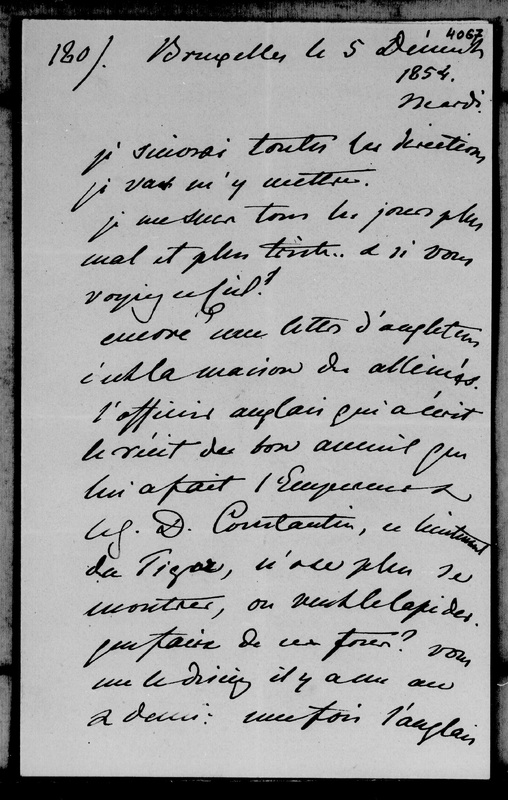 4067
180/. Bruxelles le 5 Décembre
1854.
Mardi.
je suivrai toutes les directions
je vais m'y mettre.
je me sens tous les jours plus
mal et plus triste.. & si vous
voyiez ce Ciel!
encore une lettre d'angleterre
c'est la maison des alliénés.
l'officier anglais qui a écrit
le récit du bon accueil que
lui a fait l'Empereur &
le g. D. Constantin, ce lieutenant
du Tiger, n'ose plus se
montrer, on veut le lapider.
que faire de ces fous? vous
me le disiez il y a un an
& demi: une fois l'anglais